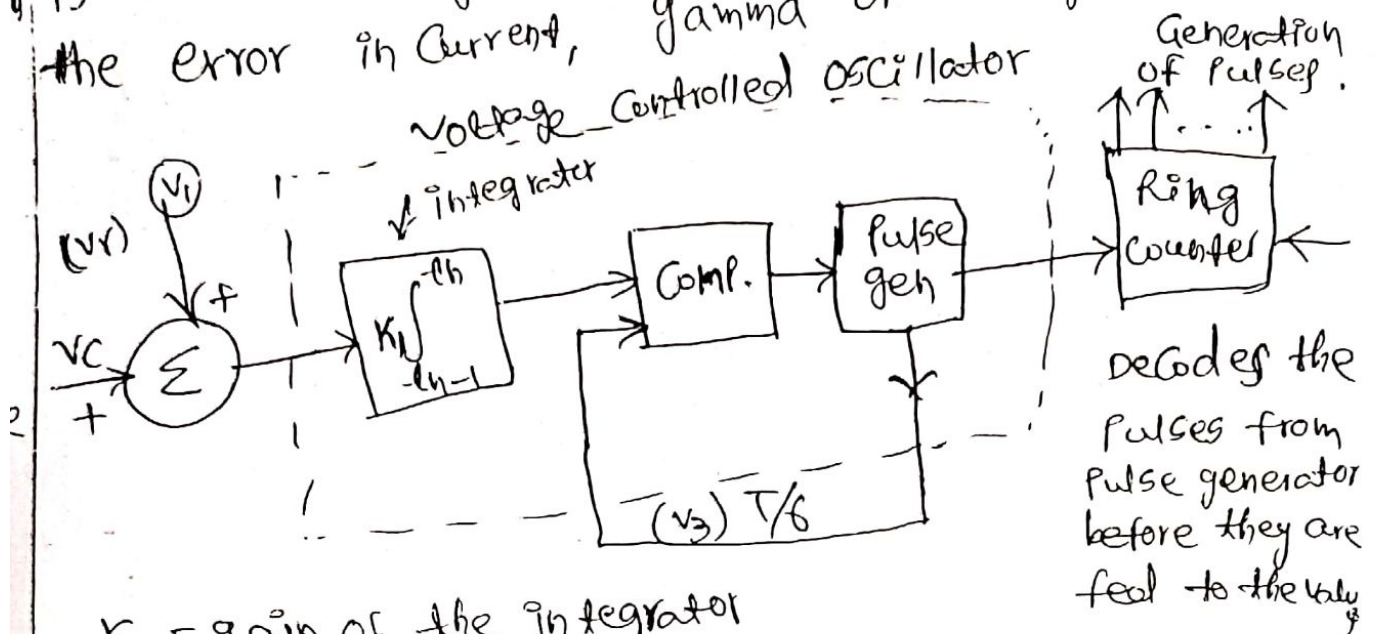 the error in Current, gamma
Generation
of Pulses.
Voltage Controlled OSCillator
integrater
V1
(Vr)
+
VC
+
Σ
K1∫
-th
-tn-1
Comp.
Pulse
gen
Ring
Counter
(V3) T/6
Decodes the
Pulses from
Pulse generator
before they are
feal to the valv
gain of the integrator